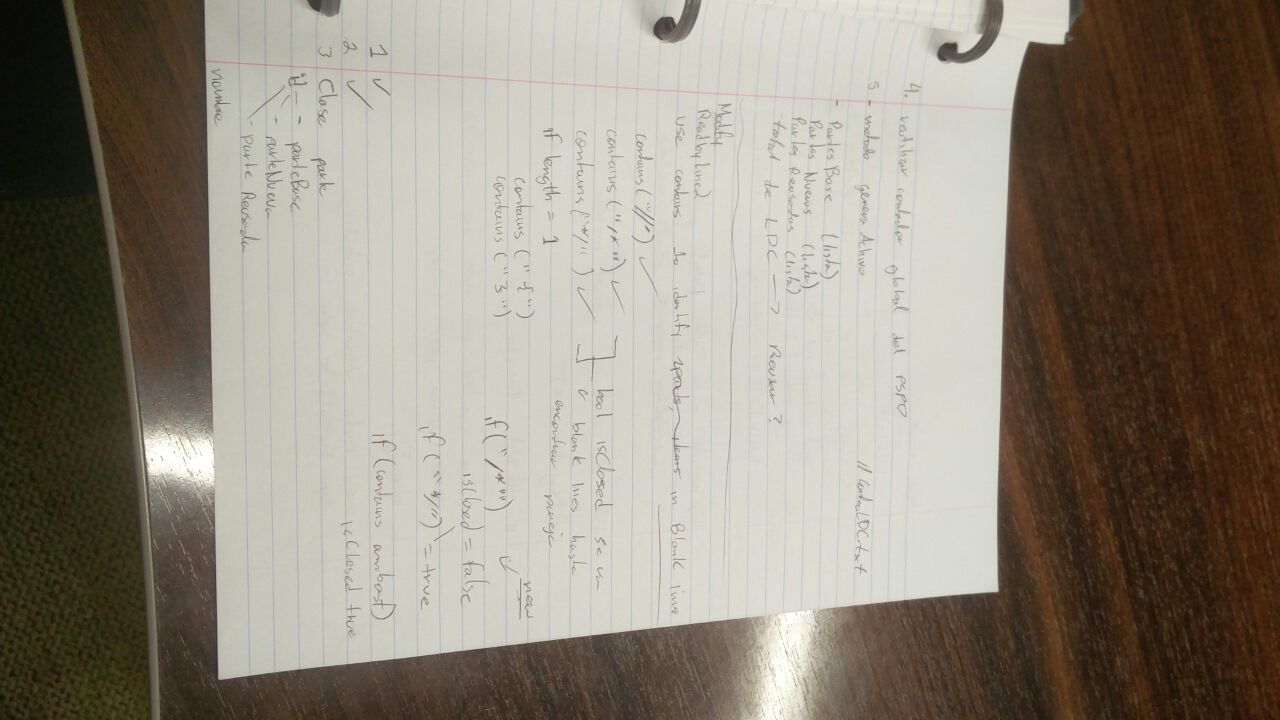 4. reutilizar contador global del PSP0
5 - metodo genera Achivo // ControlLDC.txt
- Partes Base (lista)
Partes Nuevas (lista)
Partes Reusadas (lista)
total de LDC → Revisar?
Modify
Readbyline2
Use contains to identify items in Blank line
contains("//") ✓
contains("/*") ✓ bool isClosed se va
contains("*/") ✓ ✓ blank lines hasta
if length = 1 encontrar pareja
contains("{")
contains("}")
new
if("/*") ✓
isClosed = false
if("*/") = true
if(contains ambos)
isClosed true
1 ✓
2 ✓
3 Clase parte
id - parteBase
- parteNueva
- parte Reusada
nombre